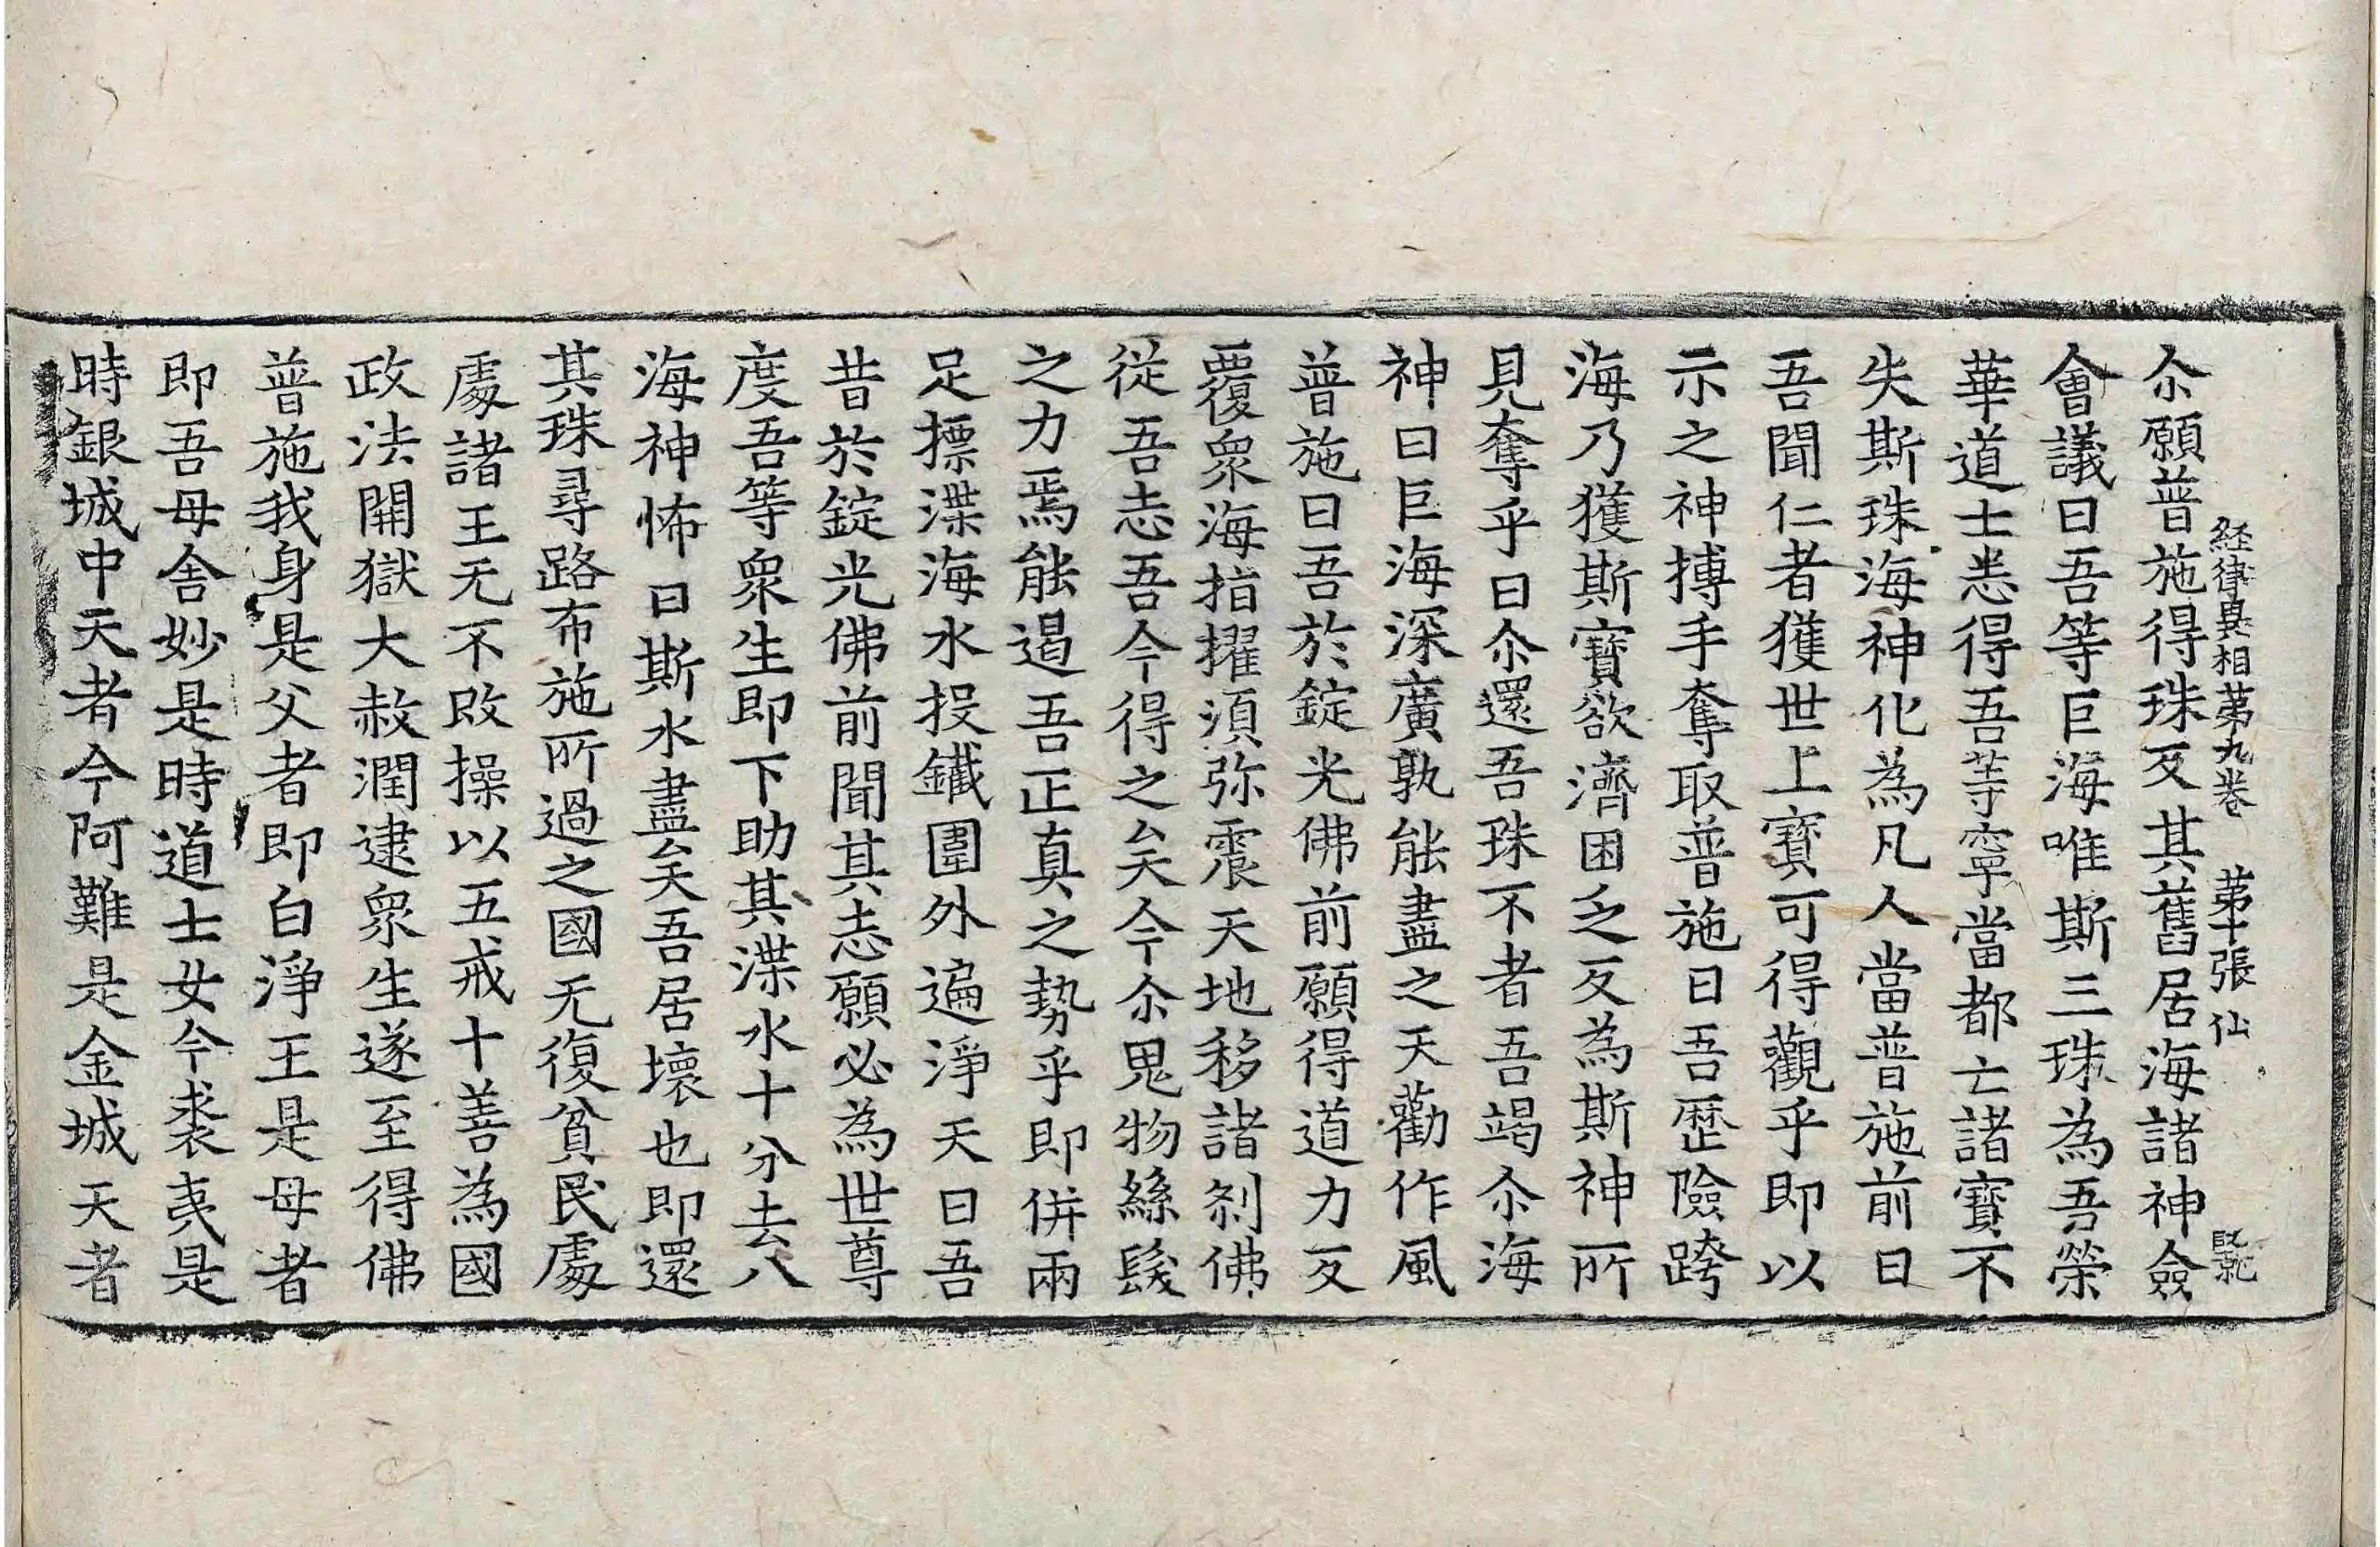 経律異相苐九卷 苐十張 仙
尒願普施得珠反其舊居海諸神僉
會議曰吾等巨海唯斯三珠為吾榮
華道士悉得吾等寧當都亡諸寶不
失斯珠海神化為凡人當普施前曰
吾聞仁者獲世上寶可得觀乎即以
示之神搏手奪取普施曰吾歷險跨
海乃獲斯寶欲濟困乏反為斯神所
見奪乎曰尒還吾珠不者吾竭尒海
神曰巨海深廣孰能盡之天勸作風
普施曰吾於錠光佛前願得道力反
覆眾海指擢須弥震天地移諸刹佛
從吾志吾今得之矣今尒鬼物絲髮
之力焉能遏吾正真之勢乎即併兩
足摽渫海水投鐵圍外遍淨天曰吾
昔於錠光佛前聞其志願必為世尊
度吾等眾生即下助其渫水十分去八
海神怖曰斯水盡矣吾居壞也即還
其珠尋路布施所過之國无復貧民處
處諸王无不改操以五戒十善為國
政法開獄大赦潤逮眾生遂至得佛
普施我身是父者即白淨王是母者
即吾母舍妙是時道士女今裘夷是
時銀城中天者今阿難是金城天者